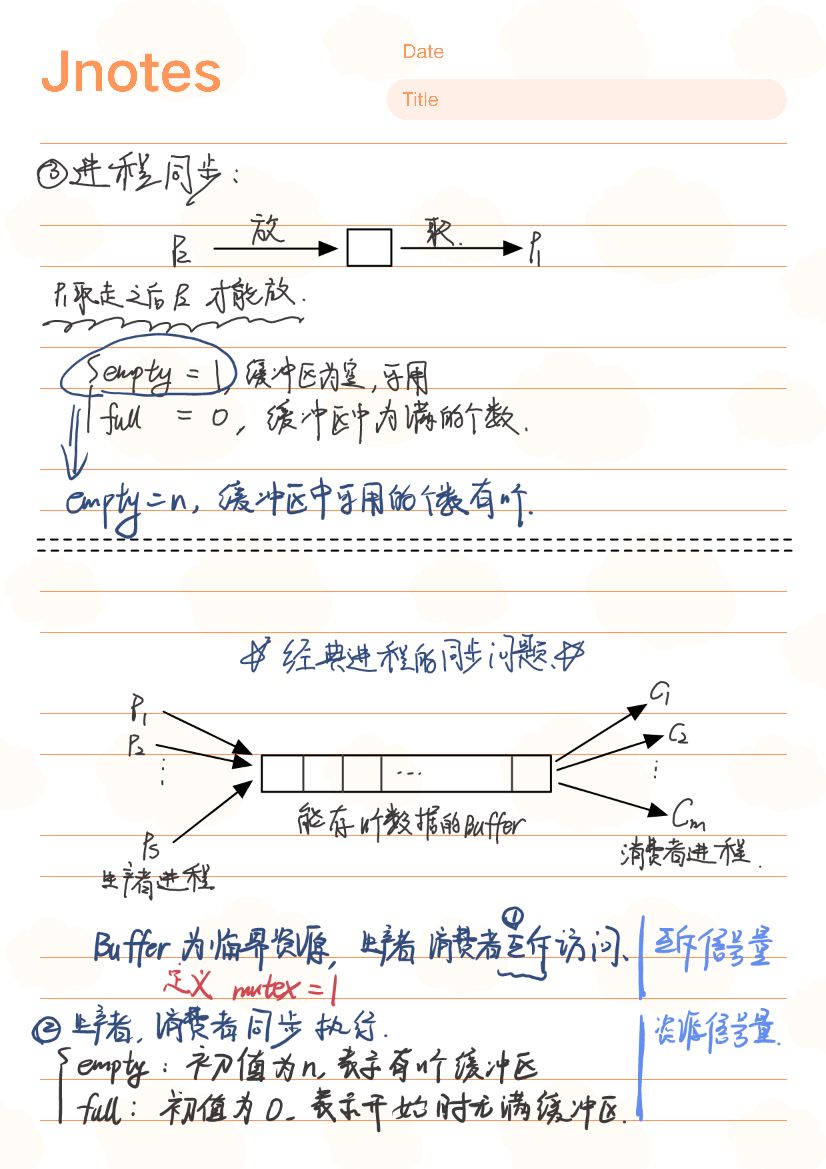 Jnotes
Date
Title
③进程同步:
P₂ 放 取. P₁
P₁取走之后P₂才能放.
empty = 1, 缓冲区为空,可用
full = 0, 缓冲区中为满的个数.
empty=n, 缓冲区中可用的个数有n个.
经典进程的同步问题.
P₁ C₁
P₂ C₂
⋮ ... ⋮
能存n个数据的Buffer Cm
P₅ 消费者进程.
生产者进程
①
Buffer为临界资源, 生产者 消费者互斥访问. 互斥信号量
定义 mutex = 1
②生产者, 消费者同步执行. 资源信号量.
empty: 初值为n, 表示有n个缓冲区
full: 初值为0. 表示开始时无满缓冲区.